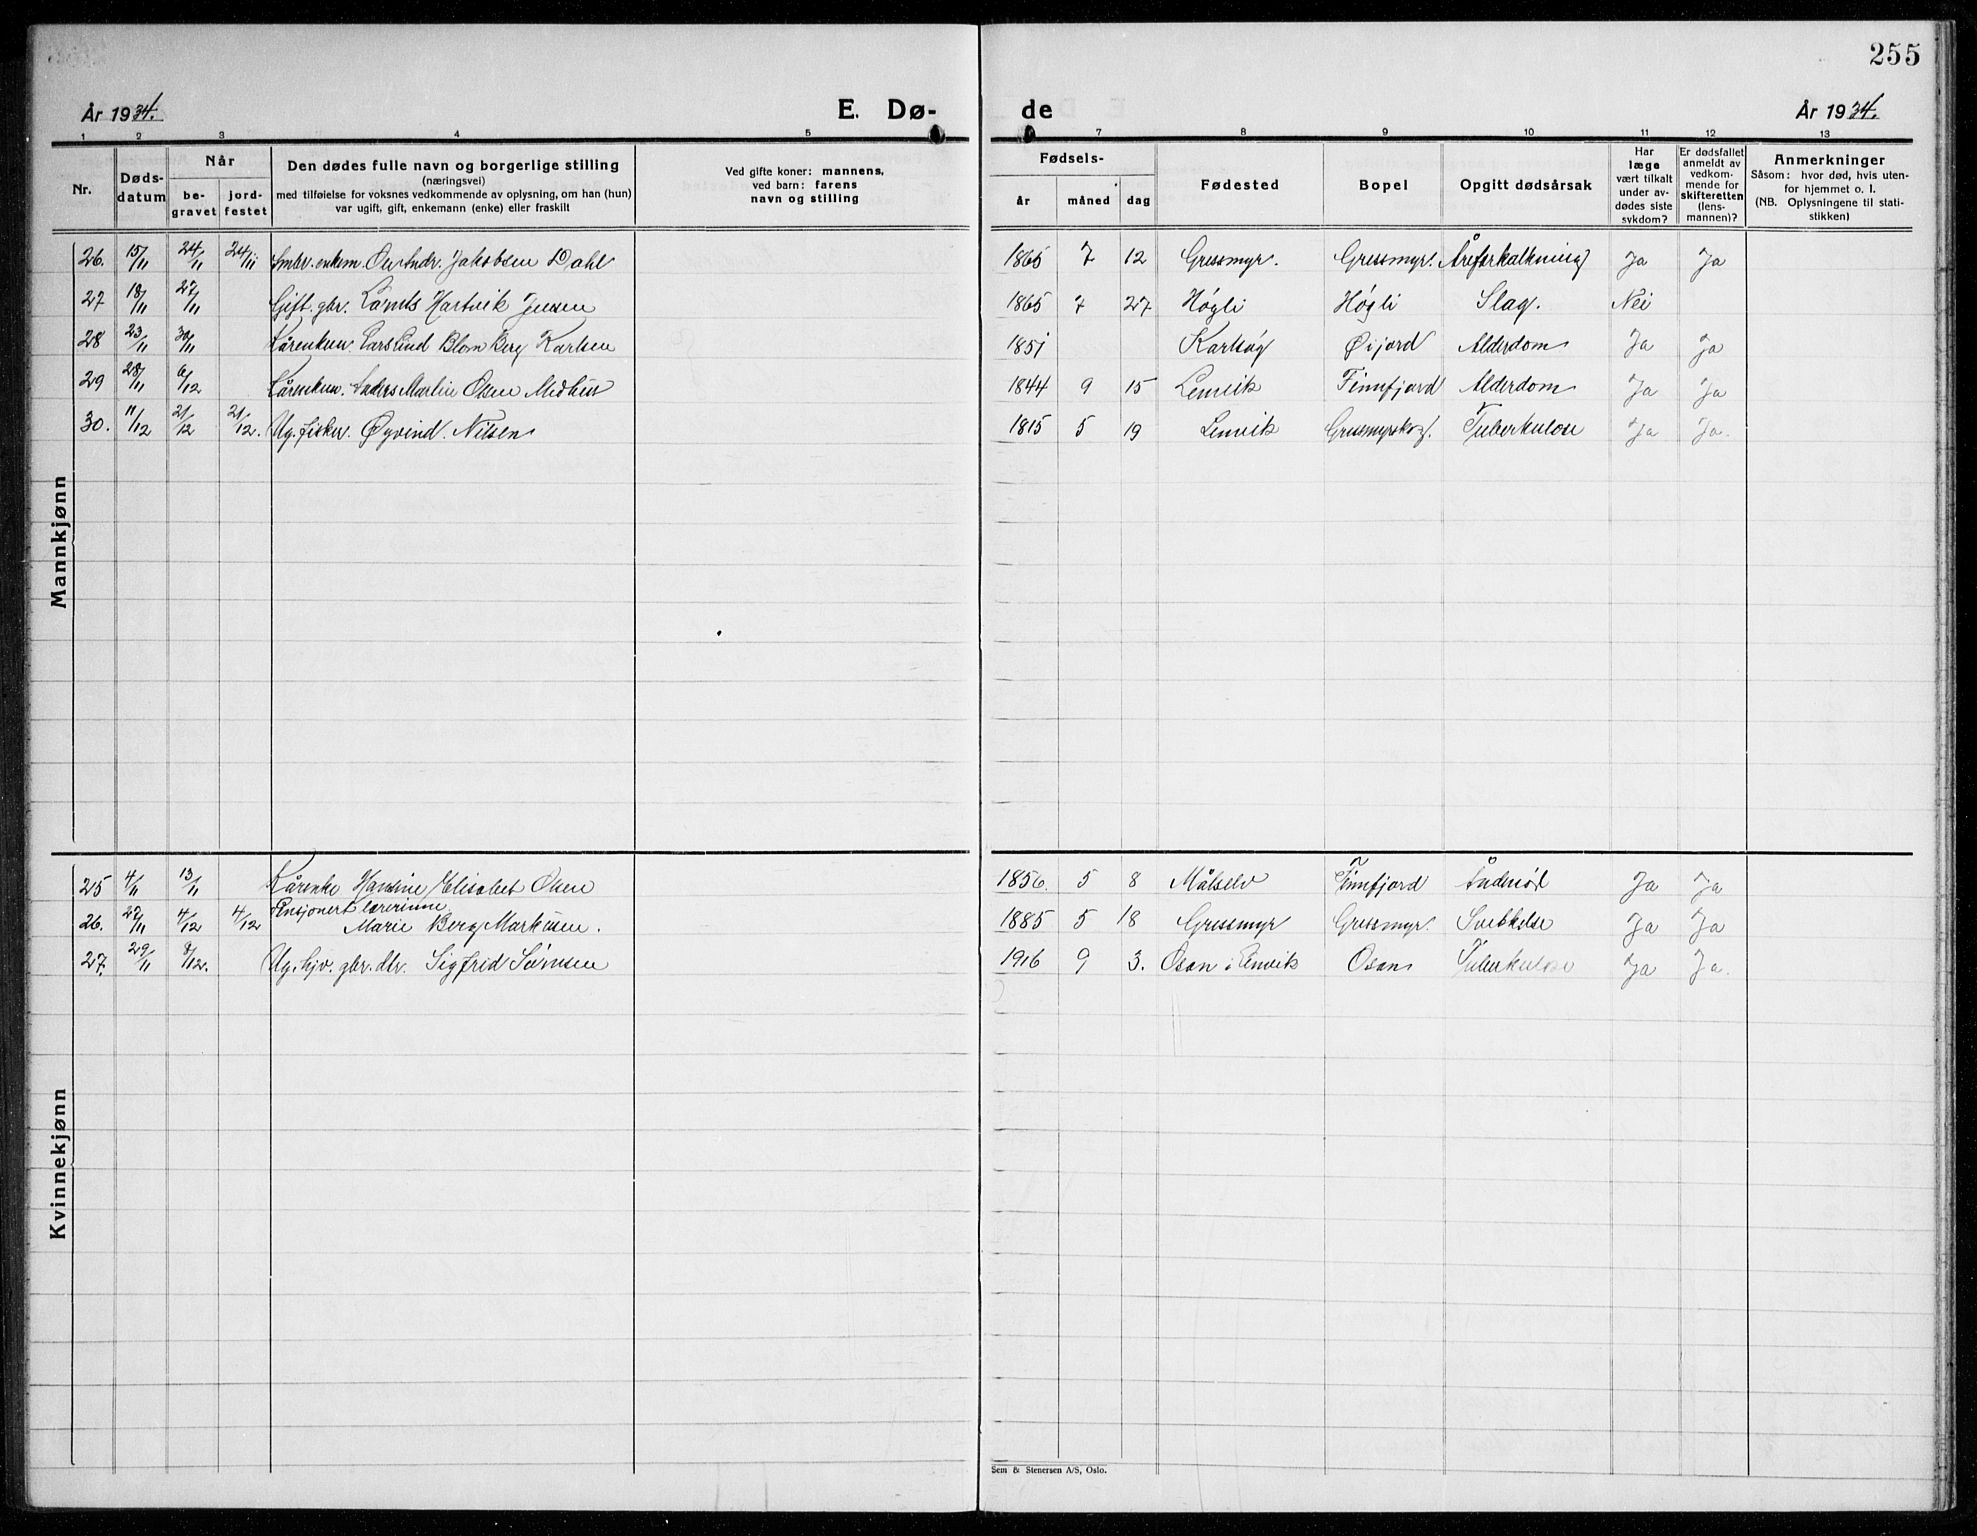 255
År 1934.
E. Dø-
de
År 1934.
1 2 3 4 5 7 8 9 10 11 12 13
Nr.
Døds-
datum
Når
be-
gravet
jord-
festet
Den dødes fulle navn og borgerlige stilling
(næringsvei)
med tilføielse for voksnes vedkommende av oplysning, om han (hun)
var ugift, gift, enkemann (enke) eller fraskilt
Ved gifte koner: mannens,
ved barn: farens
navn og stilling
Fødsels-
år måned dag
Fødested
Bopel
Opgitt dødsårsak
Har
læge
vært tilkalt
under av-
dødes siste
sykdom?
Er dødsfallet
anmeldt av
vedkom-
mende for
skifteretten
(lens-
mannen)?
Anmerkninger
Såsom: hvor død, hvis uten-
for hjemmet o. l.
(NB. Oplysningene til stati-
stikken)
Mannkjønn
26. 15/11 24/11 24/11 Smbr. enkem. Ole Andr. Jakobsen Dahl 1865 7 12 Gressmyr. Gressmyr. Åreforkalkning Ja Ja
27 18/11 27/11 Gift. gbr. Hartvik Jensen 1865 7 27 Høgli Høgli Slag. Nei
28 23/11 30/11 Kårenkem. Lars Lind Blom Berg Karlsen 1851 Karlsøy Øijord Alderdom Ja Ja
29 28/11 6/12 Kårenkem. Anders Martin Olsen Midhus 1844 9 15 Lenvik Finnfjord Alderdom Ja Ja
30. 11/12 21/12 21/12. Ug. fisker. Øyvind Nilsen 1815 5 19 Lenvik Tuberkulose Ja Ja.
Kvinnekjønn
25 4/11 13/11 Kårenke Hansine Elisabet Olsen 1856. 5 8 Målselv Finnfjord Åndenød Ja Ja
Pensjonert lærerinne
26. 27/11 4/12 4/12 Marie Berg Markusen. 1885 5 18 Gressmyr Gressmyr. Svekkelse Ja Ja
27. 29/11 8/12. Ug. hjv. gbr. dtr. Sigfrid Sørensen 1916 9 3. Osan i Lenvik Osan Tuberkulose Ja Ja.
Sem & Stenersen A/S, Oslo.